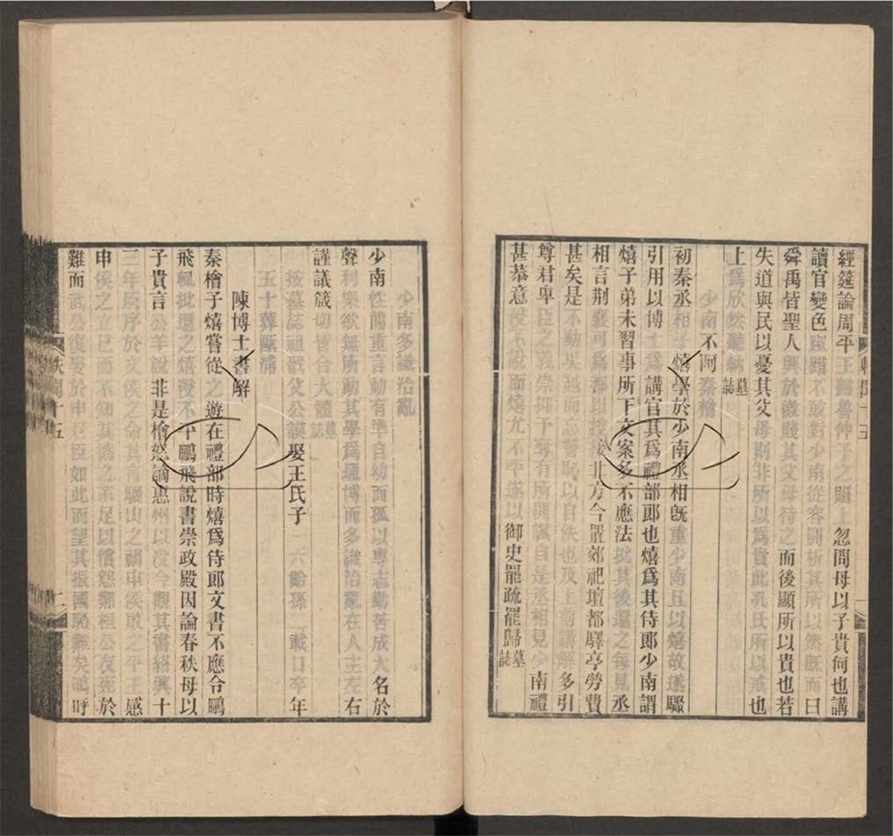 經筵論周平王歸魯仲子之賵上忽問母以子貴何也講
讀官變色踧踖不敢對少南從容闢析其所以然旣而曰
舜禹皆聖人興於微賤其父母待之而後顯所以貴也若
失道與民以憂其父母則非所以爲貴此孔氏所以戒也
上爲欣然聽納墓誌
少南不阿秦檜
初秦丞相子熺學於少南丞相旣重少南且以熺故遂驟
引用以博士爲講官其爲禮部郎也熺爲其侍郎少南謂
熺子弟未習事所下文案多不應法批其後還之每見丞
相言荆襄可爲都以控北方今罷郊祀壇都驛亭勞費
甚矣是不動吳越而忘讐恥以自佚也及上前講解多引
尊君卑臣崇抑予奪有所諷自是丞相見少南禮
甚恭意不說而熺尤不平遂以御史罷疏罷歸墓誌
少南多識治亂
少南性簡重言動有準自幼而孤以專志勤苦成大名於
聲利樂欲無所動其學爲通博而多識治亂在人主左右
謹議箴切皆合大體墓誌
按墓誌祖父公謨娶王氏子一六齡孫一載口卒年
五十葬甌浦
陳博士書解
秦檜子熺嘗從之遊在禮部時熺爲侍郎文書不應令鵬
飛輒批還之熺浸不平鵬飛說書崇政殿因論春秋母以
子貴言公羊說非是檜怒謫惠州以沒今觀其書紹興十
三年所序於文侯之命其言驪山之禍申侯啟之平王感
申侯之立己而不知其德之不足以償怨鄭桓公友死於
難而武公復娶於申君臣如此而望其振國恥難矣嗚呼